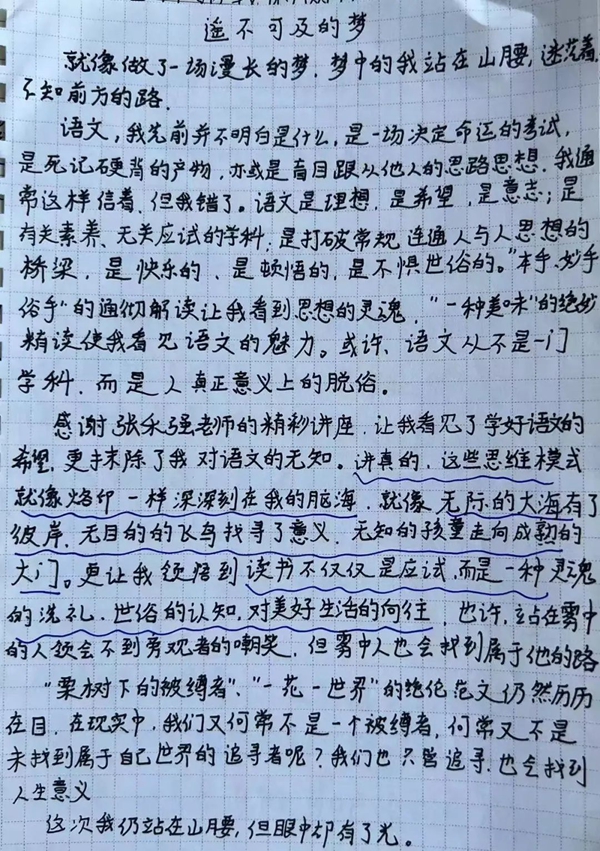 遥不可及的梦
就像做了一场漫长的梦,梦中的我站在山腰,迷茫着,
不知前方的路.
语文,我先前并不明白是什么,是一场决定命运的考试,
是死记硬背的产物,亦或是盲目跟从他人的思路思想.我通
常这样信着,但我错了。语文是理想,是希望,是意志;是
有关素养、无关应试的学科;是打破常规 连通人与人思想的
桥梁,是快乐的、是顿悟的,是不惧世俗的。"本手、妙手
俗手"的通彻解读让我看到思想的灵魂,"一种美味"的绝妙
精读使我看见语文的魅力。或许、语文从不是一门
学科,而是人真正意义上的脱俗。
感谢张永强老师的精彩讲座,让我看见了学好语文的
希望,更抹除了我对语文的无知。讲真的,这些思维模式
就像烙印一样深深刻在我的脑海,就像无际的大海有了
彼岸、无目的的飞鸟找寻了意义、无知的孩童走向成熟的
大门。更让我领悟到读书不仅仅是应试,而是一种灵魂
的洗礼、世俗的认知,对美好生活的向往,也许,站在雾中
的人领会不到旁观者的嘲笑,但雾中人也会找到属于他的路
"栗树下的被缚者"、"一花一世界"的绝伦范文仍然历历
在目,在现实中,我们又何常不是一个被缚者,何常又不是
未找到属于自己世界的追寻者呢?我们也只管追寻,也会找到
人生意义
这次我仍站在山腰,但眼中却有了光。